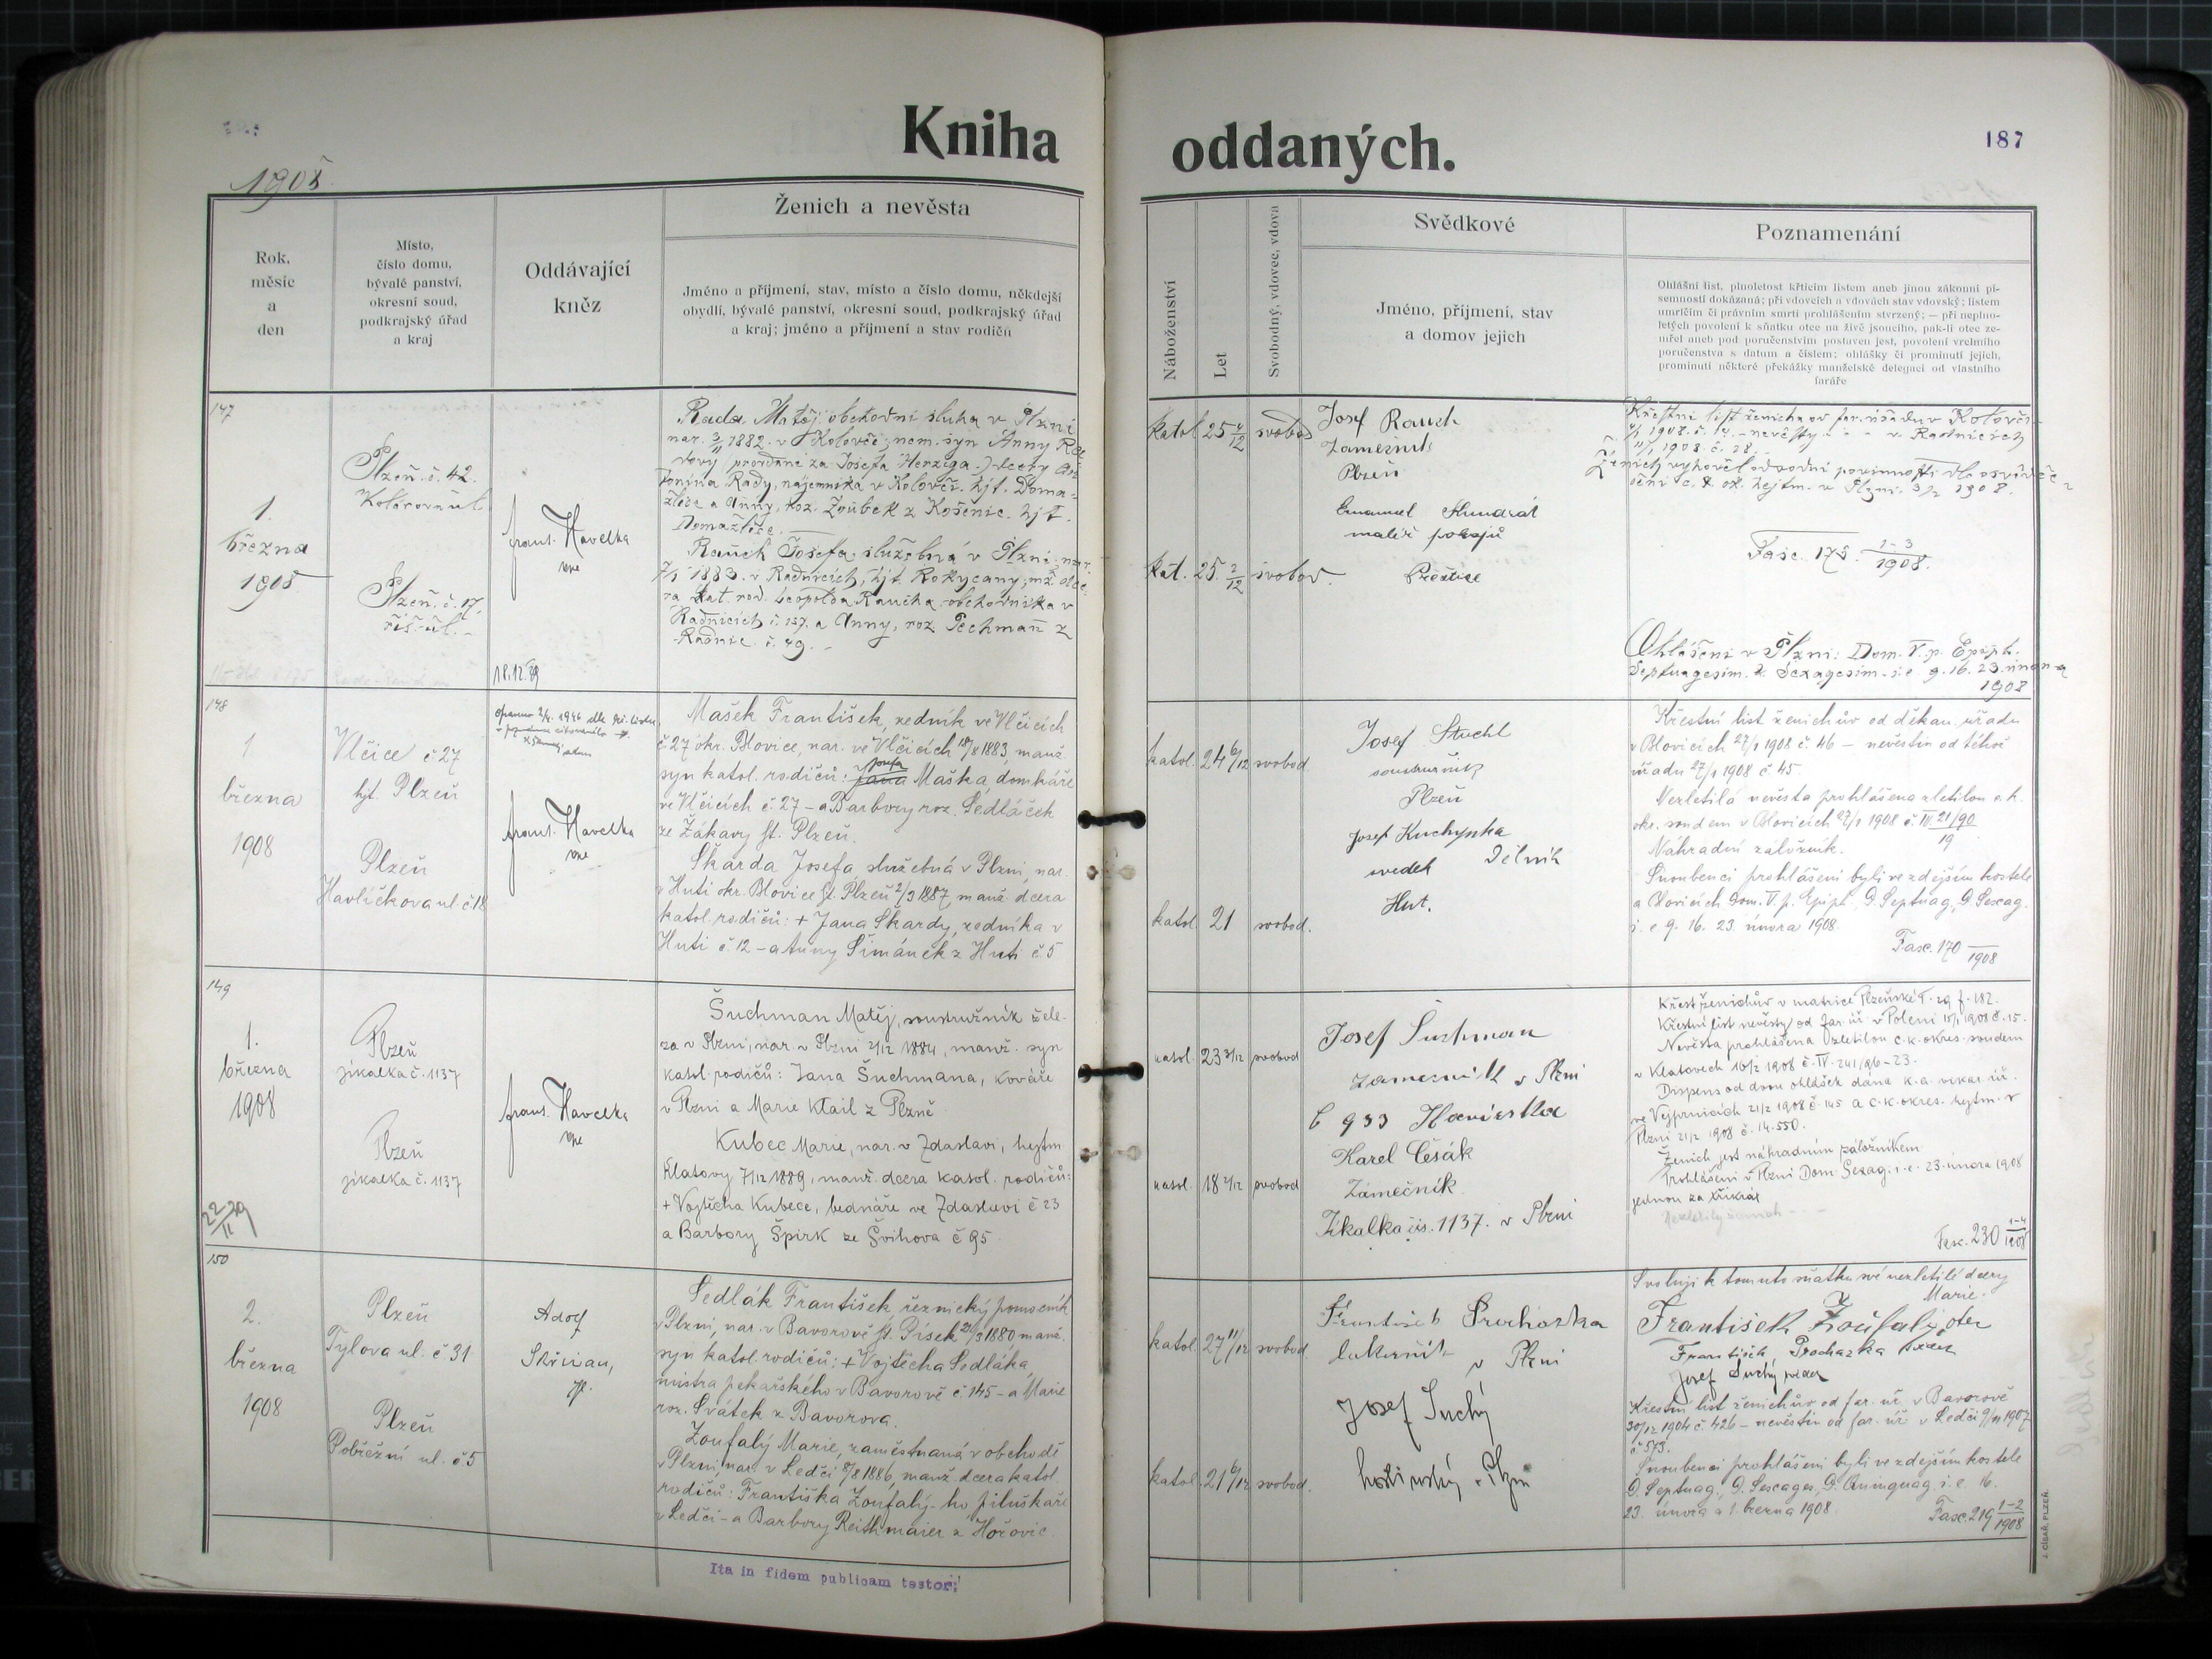 Kniha oddaných.
187
1908
Rok,
měsíc
a
den
Místo,
číslo domu,
bývalé panství,
okresní soud,
podkrajský úřad
a kraj
Oddávající
kněz
Ženich a nevěsta
Jméno a příjmení, stav, místo a číslo domu, někdejší
obydlí, bývalé panství, okresní soud, podkrajský úřad
a kraj; jméno a příjmení a stav rodičů
Náboženství
Let
Svobodný, vdovec, vdova
Svědkové
Jméno, příjmení, stav
a domov jejich
Poznamenání
Ohlášní list, plnoletost křticím listem aneb jinou zákonní pí-
semností dokázaná; při vdovcích a vdovách stav vdovský; listem
umrlčím či právním smrti prohlášením stvrzený; — při neplno-
letých povolení k sňatku otce na živě jsoucího, pak-li otec ze-
mřel aneb pod poručenstvím postaven jest, povolení vrchního
poručenstva s datum a číslem; ohlášky či prominutí jejich,
prominutí některé překážky manželské delegací od vlastního
faráře
147
1.
března
1908
Plzeň č. 42.
Plzeň č. 17,
říš. ul.
frant. Havelka
18.12.39
Rada Matěj obchodní sluha v Plzni
nar. 1882 v Kolovči, nem. syn Anny Ra-
dovy (provdané za Josefa Herziga) dcery An-
tonína Rady, nájemníka v Kolovči. hjt. Doma-
žlice a Anny, roz. Zoubek z Košenic. hjt.
Domažlice.
Rauch Josefa služebná v Plzni, nar.
1883 v Radnicích, hjt. Rokycany, mž. dce-
ra kat. rod. Leopolda Raucha obchodníka v
Radnicích č. 157. a Anny, roz. Pechmann z
Radnic č. 49.
katol 25 4/12 svobod
kat. 25 2/12 svobod.
Josef Rauch
Plzeň
Emanuel
malíř pokojů
Přeštice
Křestní list ženicha od far. úřadu v Kolovči
1908 č. 14. - nevěsty " " v Radnicích
1908. č. 28.
Ženich vyhověl odvodní povinnosti dle osvědče-
ení c. k. ok. hejtm. v Plzni 3/2 1908.
Fasc. 175 1-3/1908.
Ohlášeni v Plzni: Dom. V. p. Epiph.
Septuagesim. & Sexagesim. i. e. 9. 16. 23. února
1908
148
1
března
1908
Vlčice č 27
hjt. Plzeň
Plzeň
Havlíčkova ul. č 18
frant. Havelka
Mašek František, zedník ve Vlčicích
č. 27 okr. Blovice, nar. ve Vlčicích 18/8 1883, manž.
syn katol. rodičů: Josefa Maška, domkáře
ve Vlčicích č. 27 - a Barbory roz. Sedláček
ze Žákavy ht. Plzeň.
Škarda Josefa, služebná v Plzni, nar.
v Huti okr. Blovice ht. Plzeň 2/3 1887 manž. dcera
katol. rodičů: + Jana Škardy, zedníka v
Huti č. 12 - a Anny Šimánek z Huti č. 5
katol. 24 6/12 svobod
katol. 21 svobod.
Josef Stuchl
soustružník
Plzeň
Josef Kuchynka
svědek Dělník
Huť.
Křestní list ženichův od děkan. úřadu
v Blovicích 27/1 1908 č. 46 - nevěstin od téhož
úřadu 27/1 1908 č 45.
Nezletilá nevěsta prohlášena zletilou c. k.
okr. soudem v Blovicích 27/1 1908 č. III 21/90
19
Náhradní záložník.
Snoubenci prohlášeni byli ve zdejším kostele
a Blovicích Dom. V. p. Epiph, D. Septuag, D. Sexag.
i. e 9. 16. 23. února 1908.
Fasc. 170 /1908
149
1.
března
1908
22/11 39
Plzeň
jikalka č. 1137
Plzeň
jikalka č. 1137
frant. Havelka
Šuchman Matěj, soustružník žele-
za v Plzni, nar. v Plzni 2/12 1884, manž. syn
katol. rodičů: Jana Šuchmana, kováře
v Plzni a Marie Klail z Plzně
Kubec Marie, nar. v Zdaslavi, hejtm
Klatovy 7/12 1889, manž. dcera katol. rodičů:
+ Vojtěcha Kubece, bednáře ve Zdaslavi č 23
a Barbory Špirk ze Švihova č 95
katol. 23 3/12 svobod
katol. 18 2/12 svobod
Josef Suchman
zamecnik v Plzni
Č 933
Karel Čésák
Zámečník
Zikalka čis. 1137. v Plzni
Křest ženichův v matrice Plzeňské T. 29 f. 182.
Křestní list nevěsty od far. úř. v Poleni 15/1 1908 č. 15.
Nevěsta prohlášena zletilou c. k. okres. soudem
v Klatovech 16/2 1908 č. IV. 241/96-23.
Dispens od dvou ohlášek dána k. a. vikar. úř.
ve Vejprnicích 21/2 1908 č. 145 a c. k. okres. hejtm. v
Plzni 21/2 1908 č. 14.550.
Ženich jest náhradním záložníkem
Prohlášeni v Plzni Dom. Sexag. i. e. 23. února 1908
jednou za třikrát
Fasc. 230 1-4/1908
150
2.
března
1908
Plzeň
Tylova ul. č 31
Plzeň
Pobřežní ul. č 5
Adolf
Skřivan,
Sedlák František řeznický pomocník
v Plzni, nar. v Bavorově ht. Písek 21/3 1880 manž.
syn katol. rodičů: + Vojtěcha Sedláka,
mistra pekařského v Bavorově č 145 - a Marie
roz. Svátek z Bavorova.
Zoufalý Marie, zaměstnaná v obchodě
v Plzni, nar. v Ledči 8/8 1886, manž. dcera katol.
rodičů: Františka Zoufalý-ho piluškáře
v Ledči - a Barbory Reithmaier z Hořovic.
katol. 27 11/12 svobod.
katol. 21 6/12 svobod.
František Procházka
cukrář v Plzni
Josef Suchý
hostinský v Plzni
Svoluji k tomuto sňatku své nezletilé dcery
Marie.
František Zoufalý otec
František Procházka svědek
Josef Suchý svědek
Křestní list ženichův od far. úř. v Bavorově
30/12 1904 č. 426 - nevěstin od far. úř v Ledči 9/11 1907
č 573.
Snoubenci prohlášeni byli ve zdejším kostele
D. Septuag, D. Sexages, D. Quinquag. i. e. 16.
23. února a 1. března 1908.
Fasc. 219 1-2/1908
Ita in fidem publicam testor:
J. CÍSAŘ, PLZEŇ.